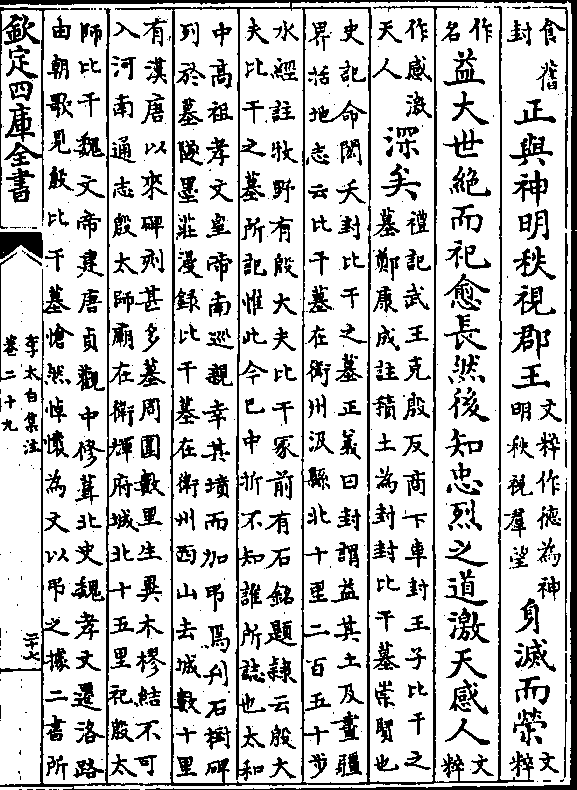 食舊
封
正與神明秩視郡王
文粹作德為神
明秩視羣望
身滅而榮
文
粹
作
名
益大世絶而祀愈長然後知忠烈之道激天感人
文
粹
作感激
天人
深矣
禮記武王克殷反商下車封王子比干之
墓鄭康成註積土為封封比干墓崇賢也
史記命閎夭封比干之墓正義曰封謂益其土及畫疆
界活地志云比干墓在衛州汲縣北十里二百五十步
水經註牧野有殷大夫比干冢前有石銘題隸云殷大
夫比干之墓所記惟此今已中折不知誰所誌也太和
中高祖孝文皇帝南巡親幸其墳而加弔焉刋石樹碑
列於墓隧墨莊漫錄比干墓在衛州西山去城數十里
有漢唐以來碑刻甚多墓周圍數里生異木樛結不可
入河南通志殷太師廟在衛輝府城北十五里祀殷太
師比干魏文帝建唐貞觀中修葺北史魏孝文遷洛路
由朝歌見殷比干墓愴然悼懷為文以弔之據二書所
欽定四庫全書
李太白集注
卷二十九
二十七